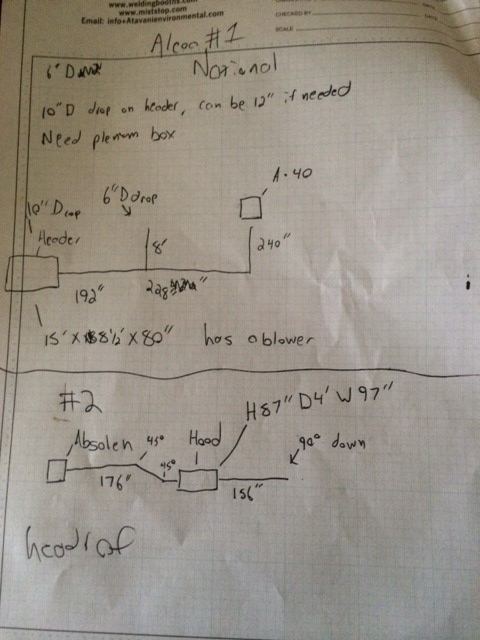 www.weldingbooths.com
www.miststop.com
Email: info@Atavanienvironmental.com
CHECKED BY
DATE
SCALE
Alcoa #1
6" D
National
10" D drop on header, can be 12" if needed
Need plenum box
A-40
10" Drop
6" D drop
Header
8'
240"
192"
228"
15' X 8 1/2' X 80" has a blower
#2
H 87" D 4' W 97"
Absolen
45°
Hood
90° down
45°
176"
156"